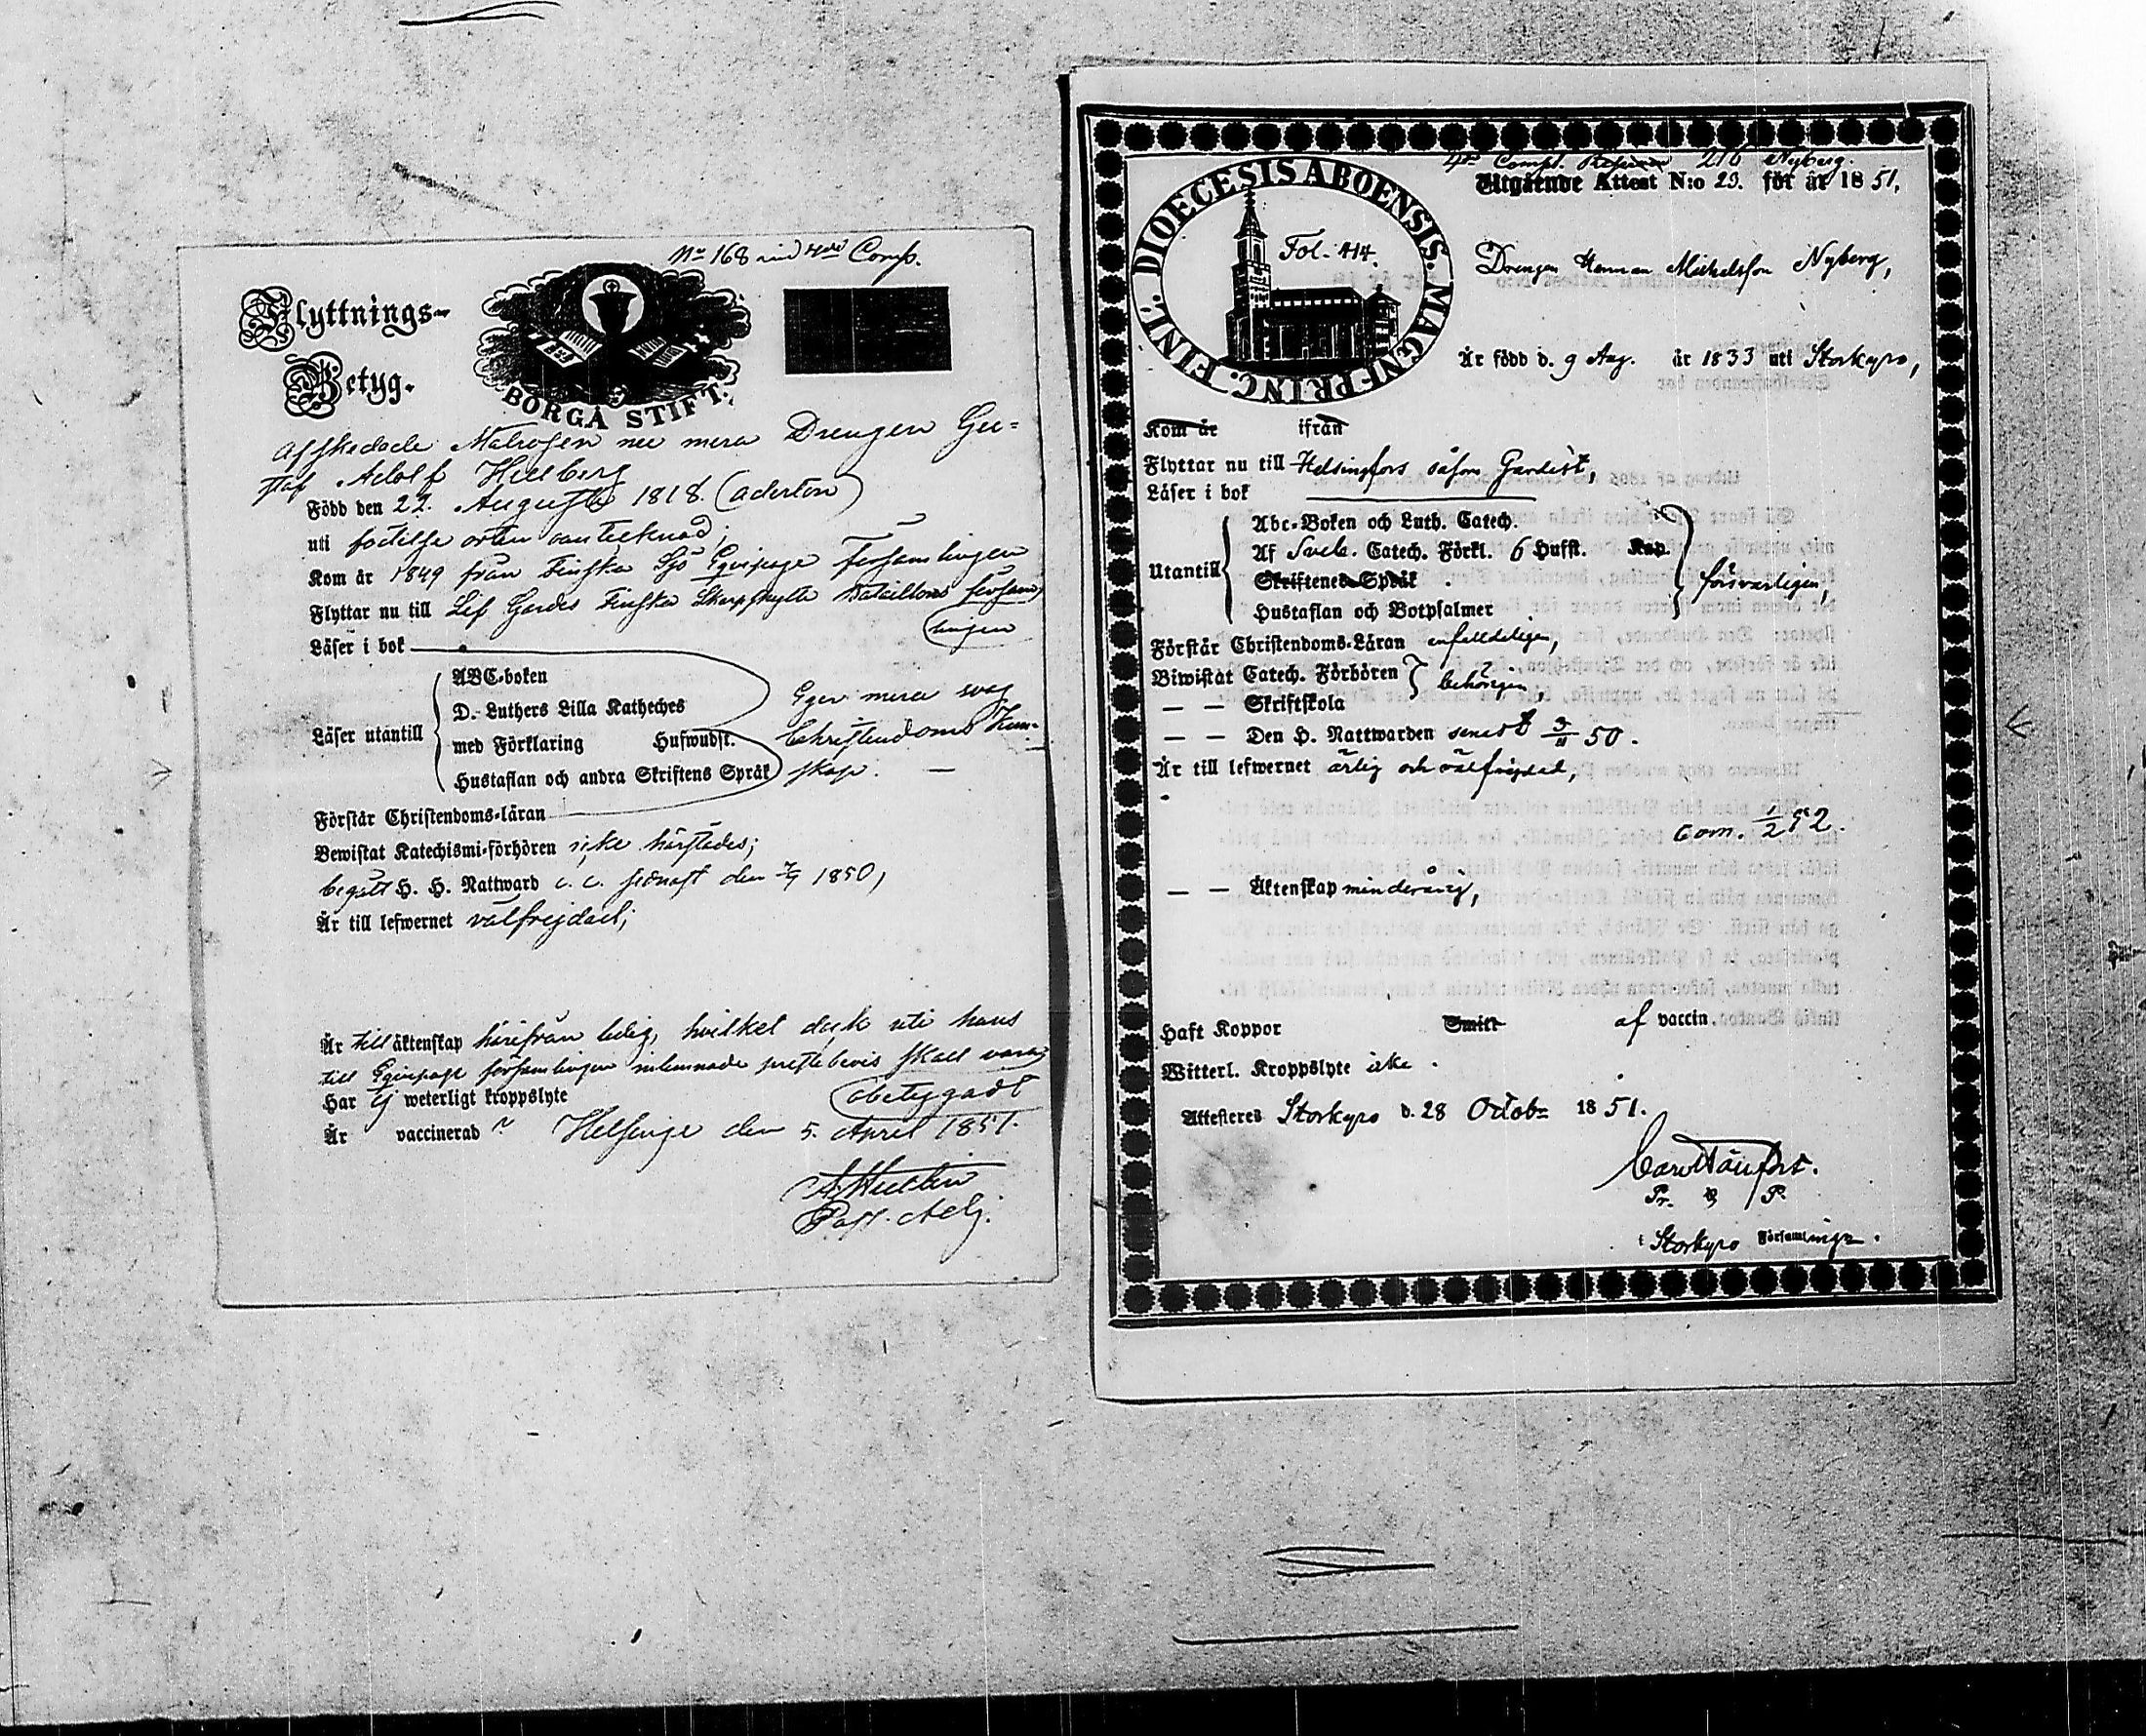 No 168 vid 4de Comp.
Flyttnings-
Betyg.
BORGÅ STIFT.
Afskedade Matrosen nu mera Drengen Gu=
staf Adolf Hellberg
Född den 22. Augusti 1818. (aderton)
uti födelse orten oantecknad;
Kom år 1849 från Finska Sjö Eqvipage Församlingen
Flyttar nu till Lif Gardes Finska Skarpskytte Bataillons försam
lingen
Läser i bok
ABC-boken
D. Luthers Lilla Katheches
Läser utantill
med Förklaring Hufwudst.
Hustaflan och andra Skriftens Språk
Eger mera svag
Christendoms Kun-
skap. —
Förstår Christendoms-läran
Bewistat Katechismi-förhören icke härstädes;
begått H. H. Nattward c. c. sednast den 7/9 1850,
Är till lefwernet välfrejdad;
Är till äktenskap härifrån ledig, hvilket dock uti hans
till Eqvipage församlingen inlemnade prestebevis skall vara
betygadt
Har ej weterligt kroppslyte
Är vaccinerad ? Helsinge den 5. April 1851.
Past. Adj.
4de Comp. 216 Nyberg.
Utgående Attest N:o 29. för år 1851,
DIOECESIS ABOENSIS. MAGNI PRINC. FINL.
Fol. 414.
Drengen Herman Michelsson Nyberg,
Är född d. 9 Aug. år 1833 uti Storkyro,
Kom år ifrån
Flyttar nu till Helsingfors såsom Gardist,
Läser i bok
Abc-Boken och Luth. Catech.
Utantill
Af Sveb. Catech. Förkl. 6 Hufst. Kap.
Skriftenes Språk
Hustaflan och Botpsalmer
försvarligen,
Förstår Christendoms-Läran enfaldeligen,
Biwistat Catech. Förhören
— — Skriftskola
behörigen,
— — Den H. Nattwarden senast 3/11 50.
Är till lefwernet ärlig och välfrejdad,
Com. 1/2 52.
— — Äktenskap minderårig,
Haft Koppor Smitt af vaccin.
Witterl. Kroppslyte icke.
Attesteres Storkyro d. 28 Octob= 1851.
Pr. & P.
i Storkyro Församlings.